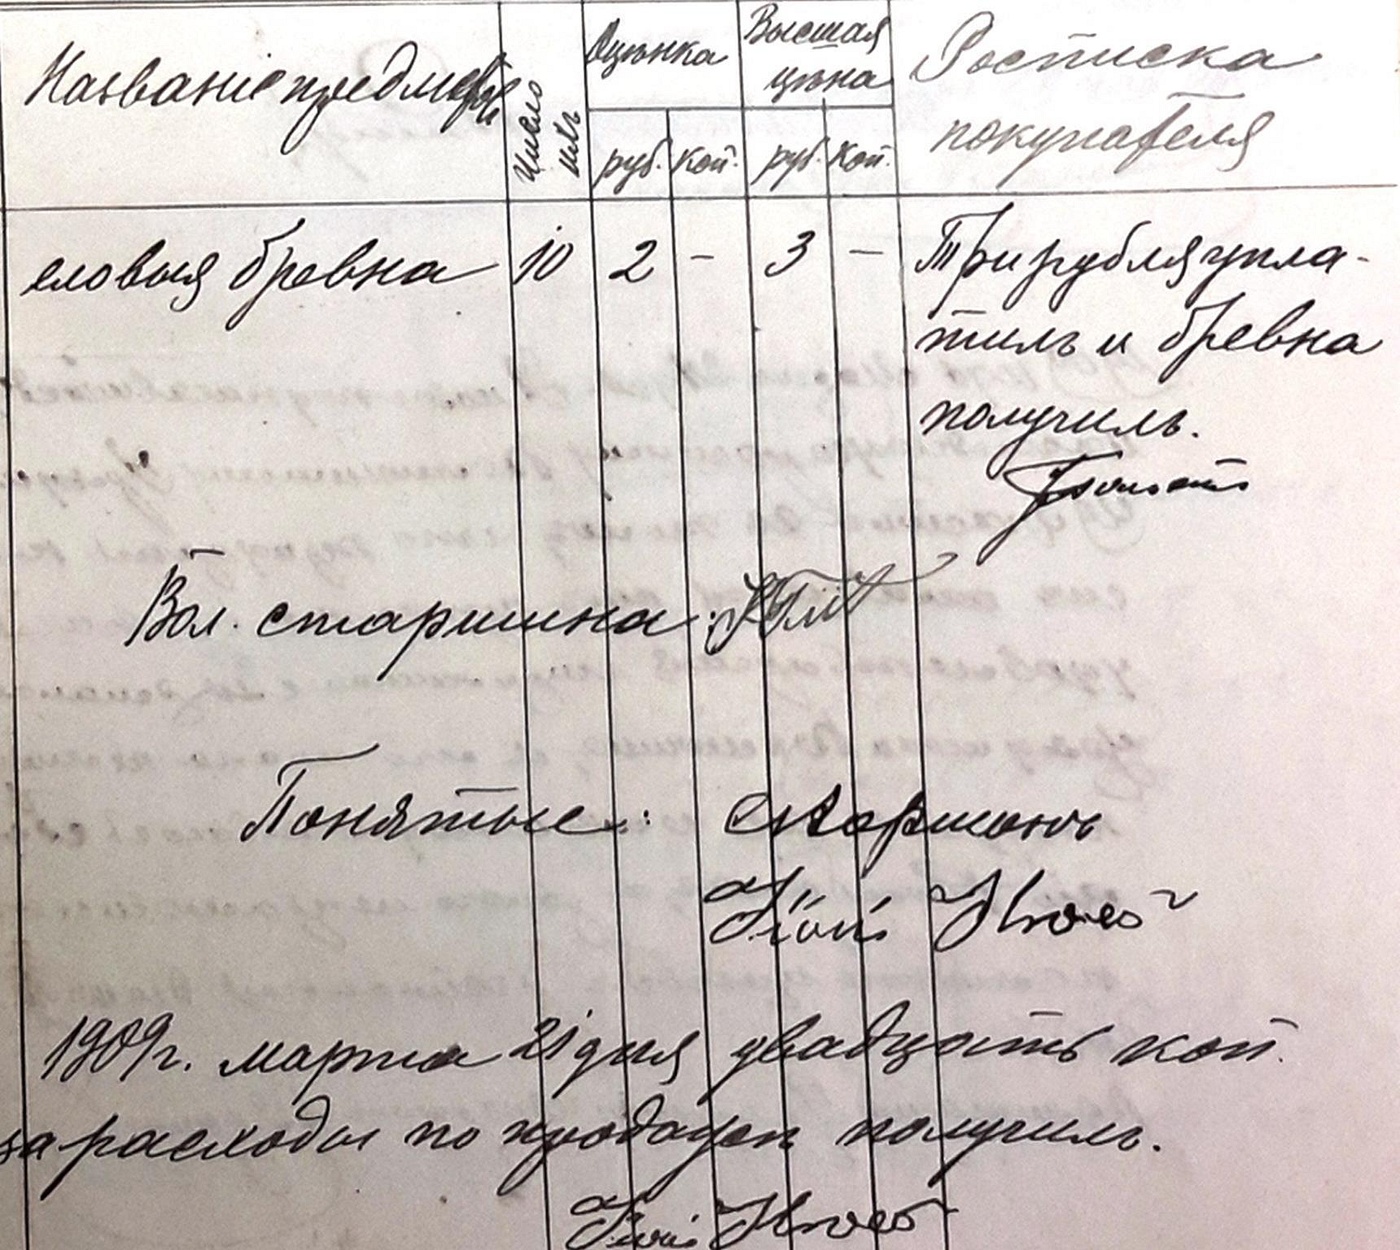 Названіе предметовъ
Число
ихъ
Оцѣнка
руб. коп.
Высшая
цѣна
руб. коп.
Росписка
покупателя
еловыя бревна 10 2 – 3 –
Три рубля упла-
тилъ и бревна
получилъ.
Вол. старшина:
Понятые:
1909 г. марта 21 дня двадцать коп.
за расходы по продажѣ получилъ.